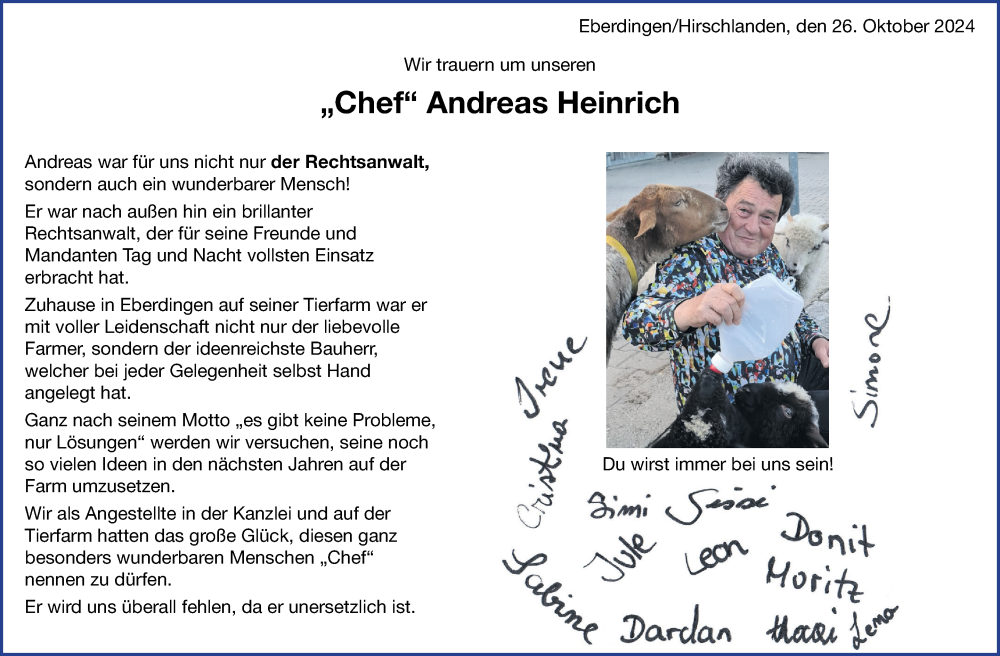 Eberdingen/Hirschlanden, den 26. Oktober 2024
Wir trauern um unseren
„Chef“ Andreas Heinrich
Andreas war für uns nicht nur der Rechtsanwalt,
sondern auch ein wunderbarer Mensch!
Er war nach außen hin ein brillanter
Rechtsanwalt, der für seine Freunde und
Mandanten Tag und Nacht vollsten Einsatz
erbracht hat.
Zuhause in Eberdingen auf seiner Tierfarm war er
mit voller Leidenschaft nicht nur der liebevolle
Farmer, sondern der ideenreichste Bauherr,
welcher bei jeder Gelegenheit selbst Hand
angelegt hat.
Ganz nach seinem Motto „es gibt keine Probleme,
nur Lösungen“ werden wir versuchen, seine noch
so vielen Ideen in den nächsten Jahren auf der
Farm umzusetzen.
Wir als Angestellte in der Kanzlei und auf der
Tierfarm hatten das große Glück, diesen ganz
besonders wunderbaren Menschen „Chef“
nennen zu dürfen.
Er wird uns überall fehlen, da er unersetzlich ist.
Du wirst immer bei uns sein!
Irene
Simone
Cristina
Simi Sissi
Jule Leon Donit
Moritz
Sabine Dardan Lena